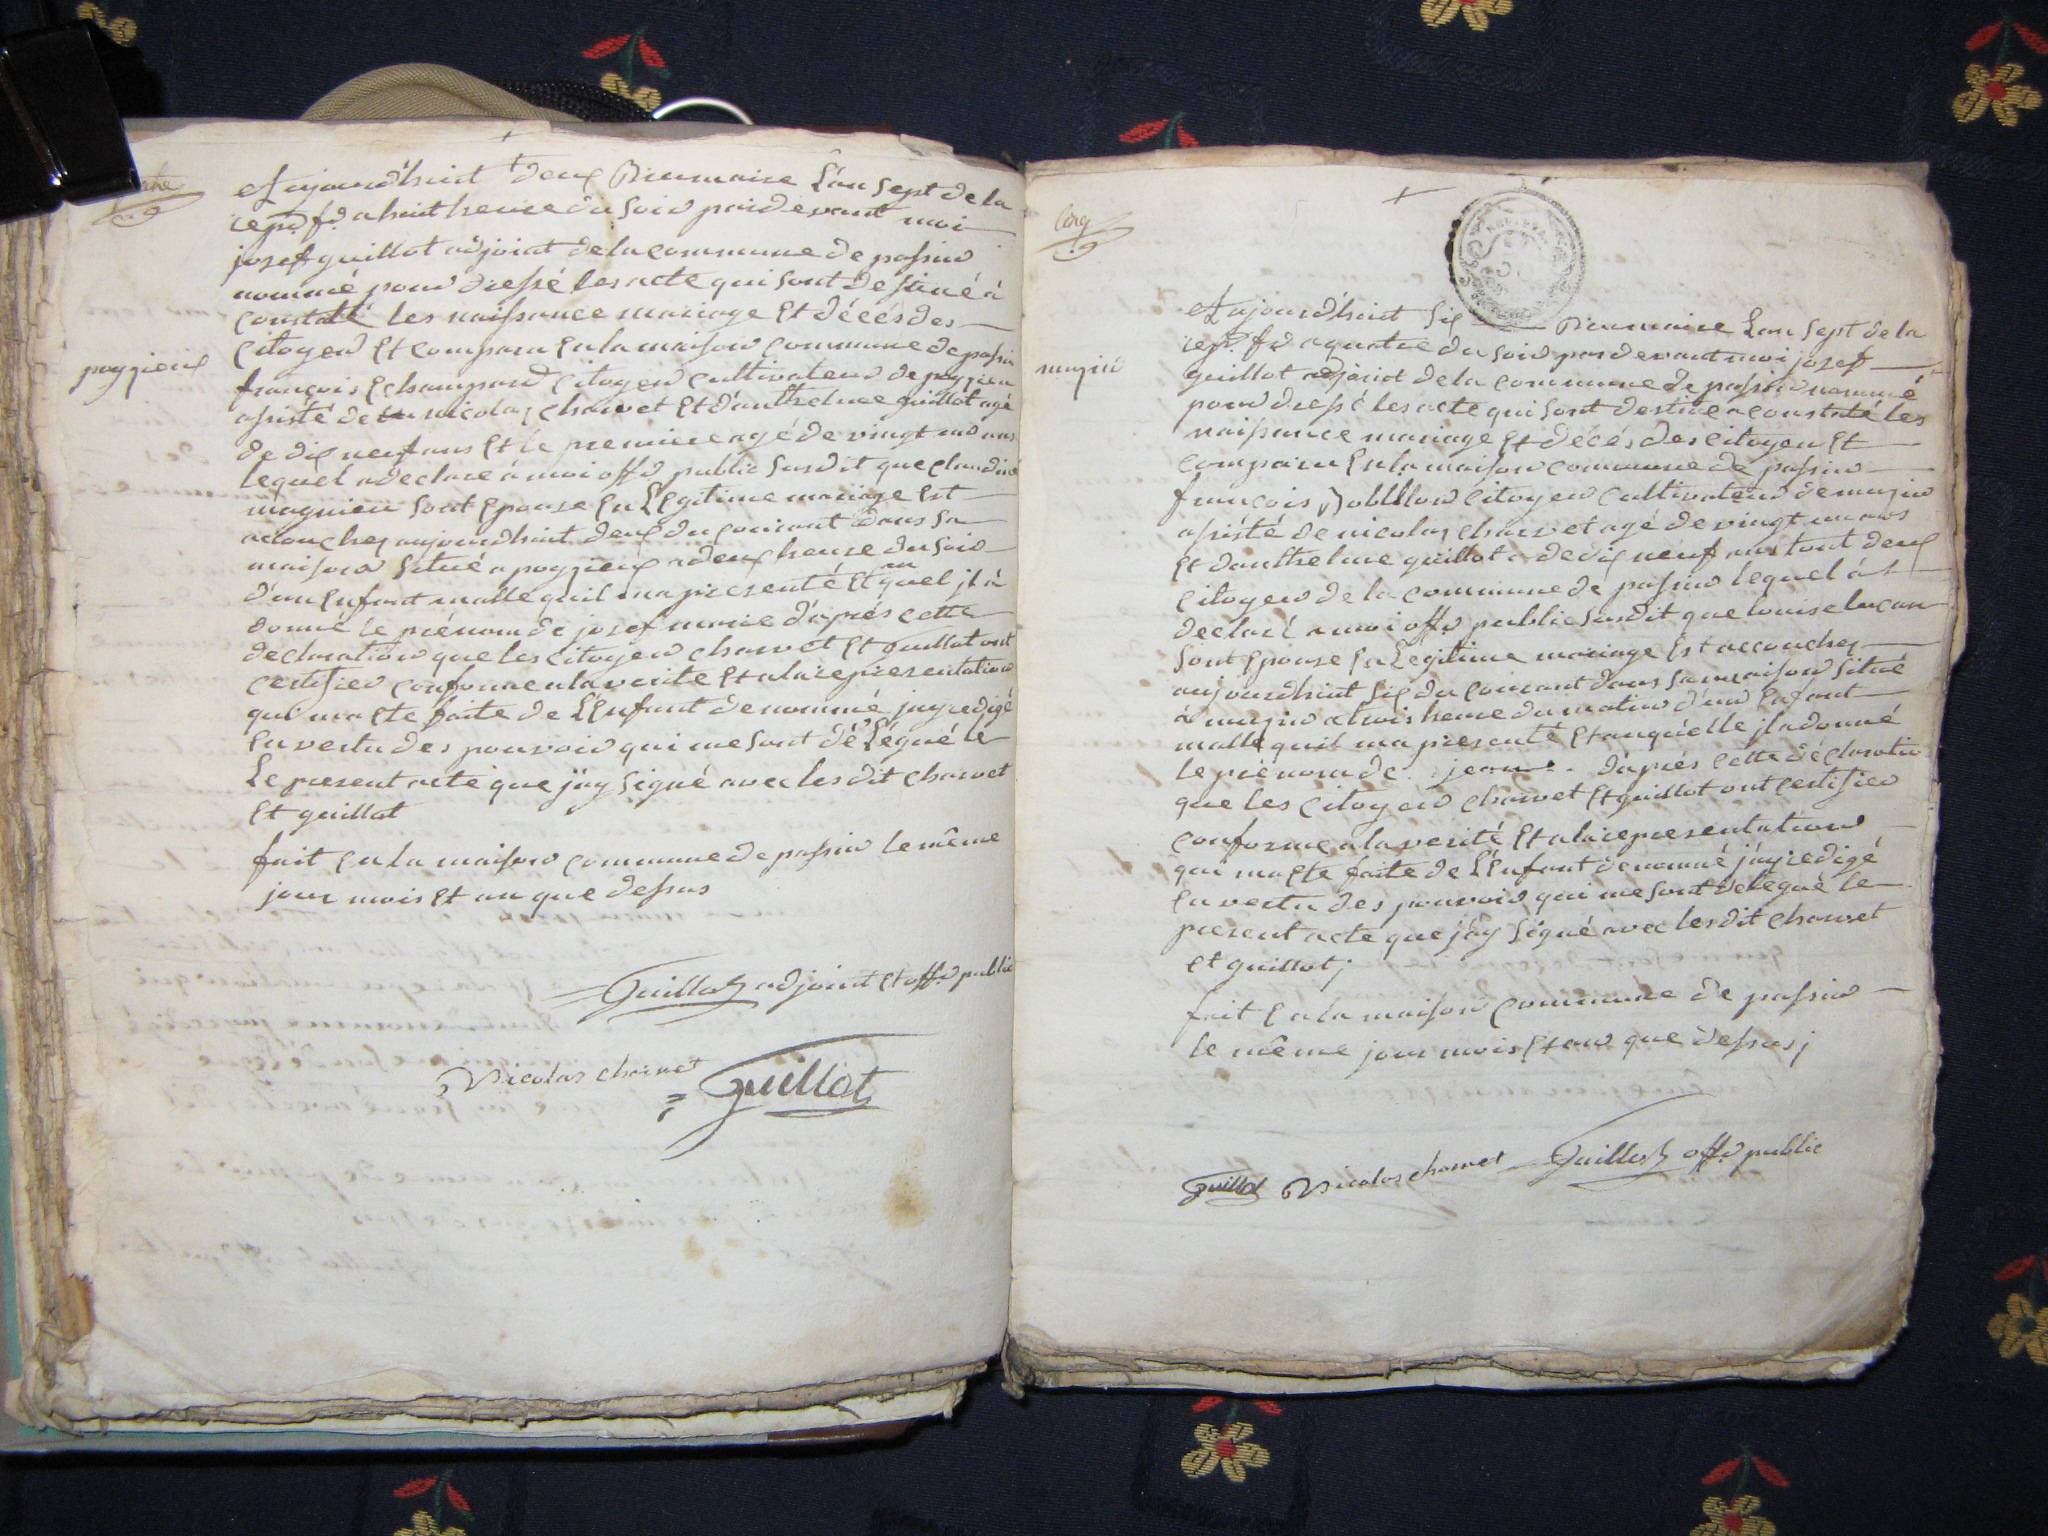 Aujourdhuit deux Brumaire Lan sept de la
rep. f. a huit heure du soir pardevant moi
josef guillot adjoint de la commune de passin
nommé pour dressé les acte qui sont destiné à
constaté les naissance mariage Et décés des
Citoyen Et comparu En la maison commune de passin
poyzieux
françois Echampard Citoyen cultivateur de poyzieu
assisté de nicolas charvet Et d'anthelme guillot agé
de dix neuf ans Et le premiere agé de vingt un ans
lequel a declaré à moi off. public susdit que claudine
magnien sont Epouse En Legitime mariage Est
accouchez aujourdhuit deux du courant dans sa
maison situé a poyzieux a deux heure du soir
d'un Enfant malle quil ma presenté Et auquel jl à
donné le prénom de josef marie d'après cette
declaration que les citoyen charvet Et Guillot ont
certifier conforme a la verité Et a la representation
qui ma Eté faite de L'Enfant denommé jay redigé
En vertu des pouvoir qui me sont délégué le
Le present acte que j'ay signé avec lesdit charvet
Et guillot
fait En la maison commune de passin le même
jour mois Et an que dessus
Guillot adjoint et off. public
Nicolas charvet Guillot
Cinq
Aujourdhuit six Brumaire Lan sept de la
rep. f. a quatre du soir pardevant moi josef
muzin
guillot adjoint de la commune de passin nommé
pour dressé les acte qui sont destiné a constaté les
naissance mariage Et décés des Citoyen Et
comparu En la maison commune de passin
françois citoyen cultivateur de muzin
assisté de nicolas charvet agé de vingt un ans
Et danthelme guillot de dix neuf ans tout deux
Citoyen de la commune de passin lequel à
declaré a moi off. public susdit que louise
sont Epouse En Legitime mariage Est accouchez
aujourdhuit six du courant dans sa maison situé
à muzin a trois heure du matin d'un Enfant
malle quil ma presenté Et auquelle jl a donné
le prénom de jean d'après cette déclaration
que les citoyen charvet Et guillot ont certifier
conforme a la verité Et a la representation
qui ma Eté faite de L'Enfant denommé j'ay redigé
En vertu des pouvoir qui me sont delegué le
present acte que j'ay signé avec lesdit charvet
et guillot
fait En la maison commune de passin
le même jour mois Et an que dessus
Guillot Nicolas charvet Guillot off. public